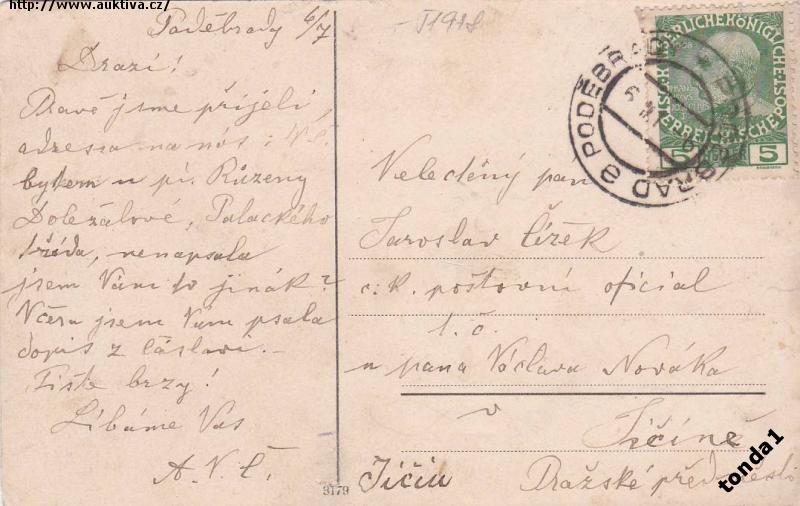 http://www.auktiva.cz/
Poděbrady 6/7
Drazí!
Právě jsme přijeli,
adresa na nás:
bytem u pí. Růženy
Doležalové, Palackého
třída, nenapsala
jsem Vám to jinák?
Včera jsem Vám psala
dopis z Čáslavi. –
Pište brzy!
Líbáme Vás
A. V. Č.
- J1918
PODĚBRAD
5 5
Velectěný pan
Jaroslav Čížek
c. k. poštovní oficial
t. č.
u pana Václava Nováka
v
Jičíně
Jičín
Pražské předměstí
9179
tonda1